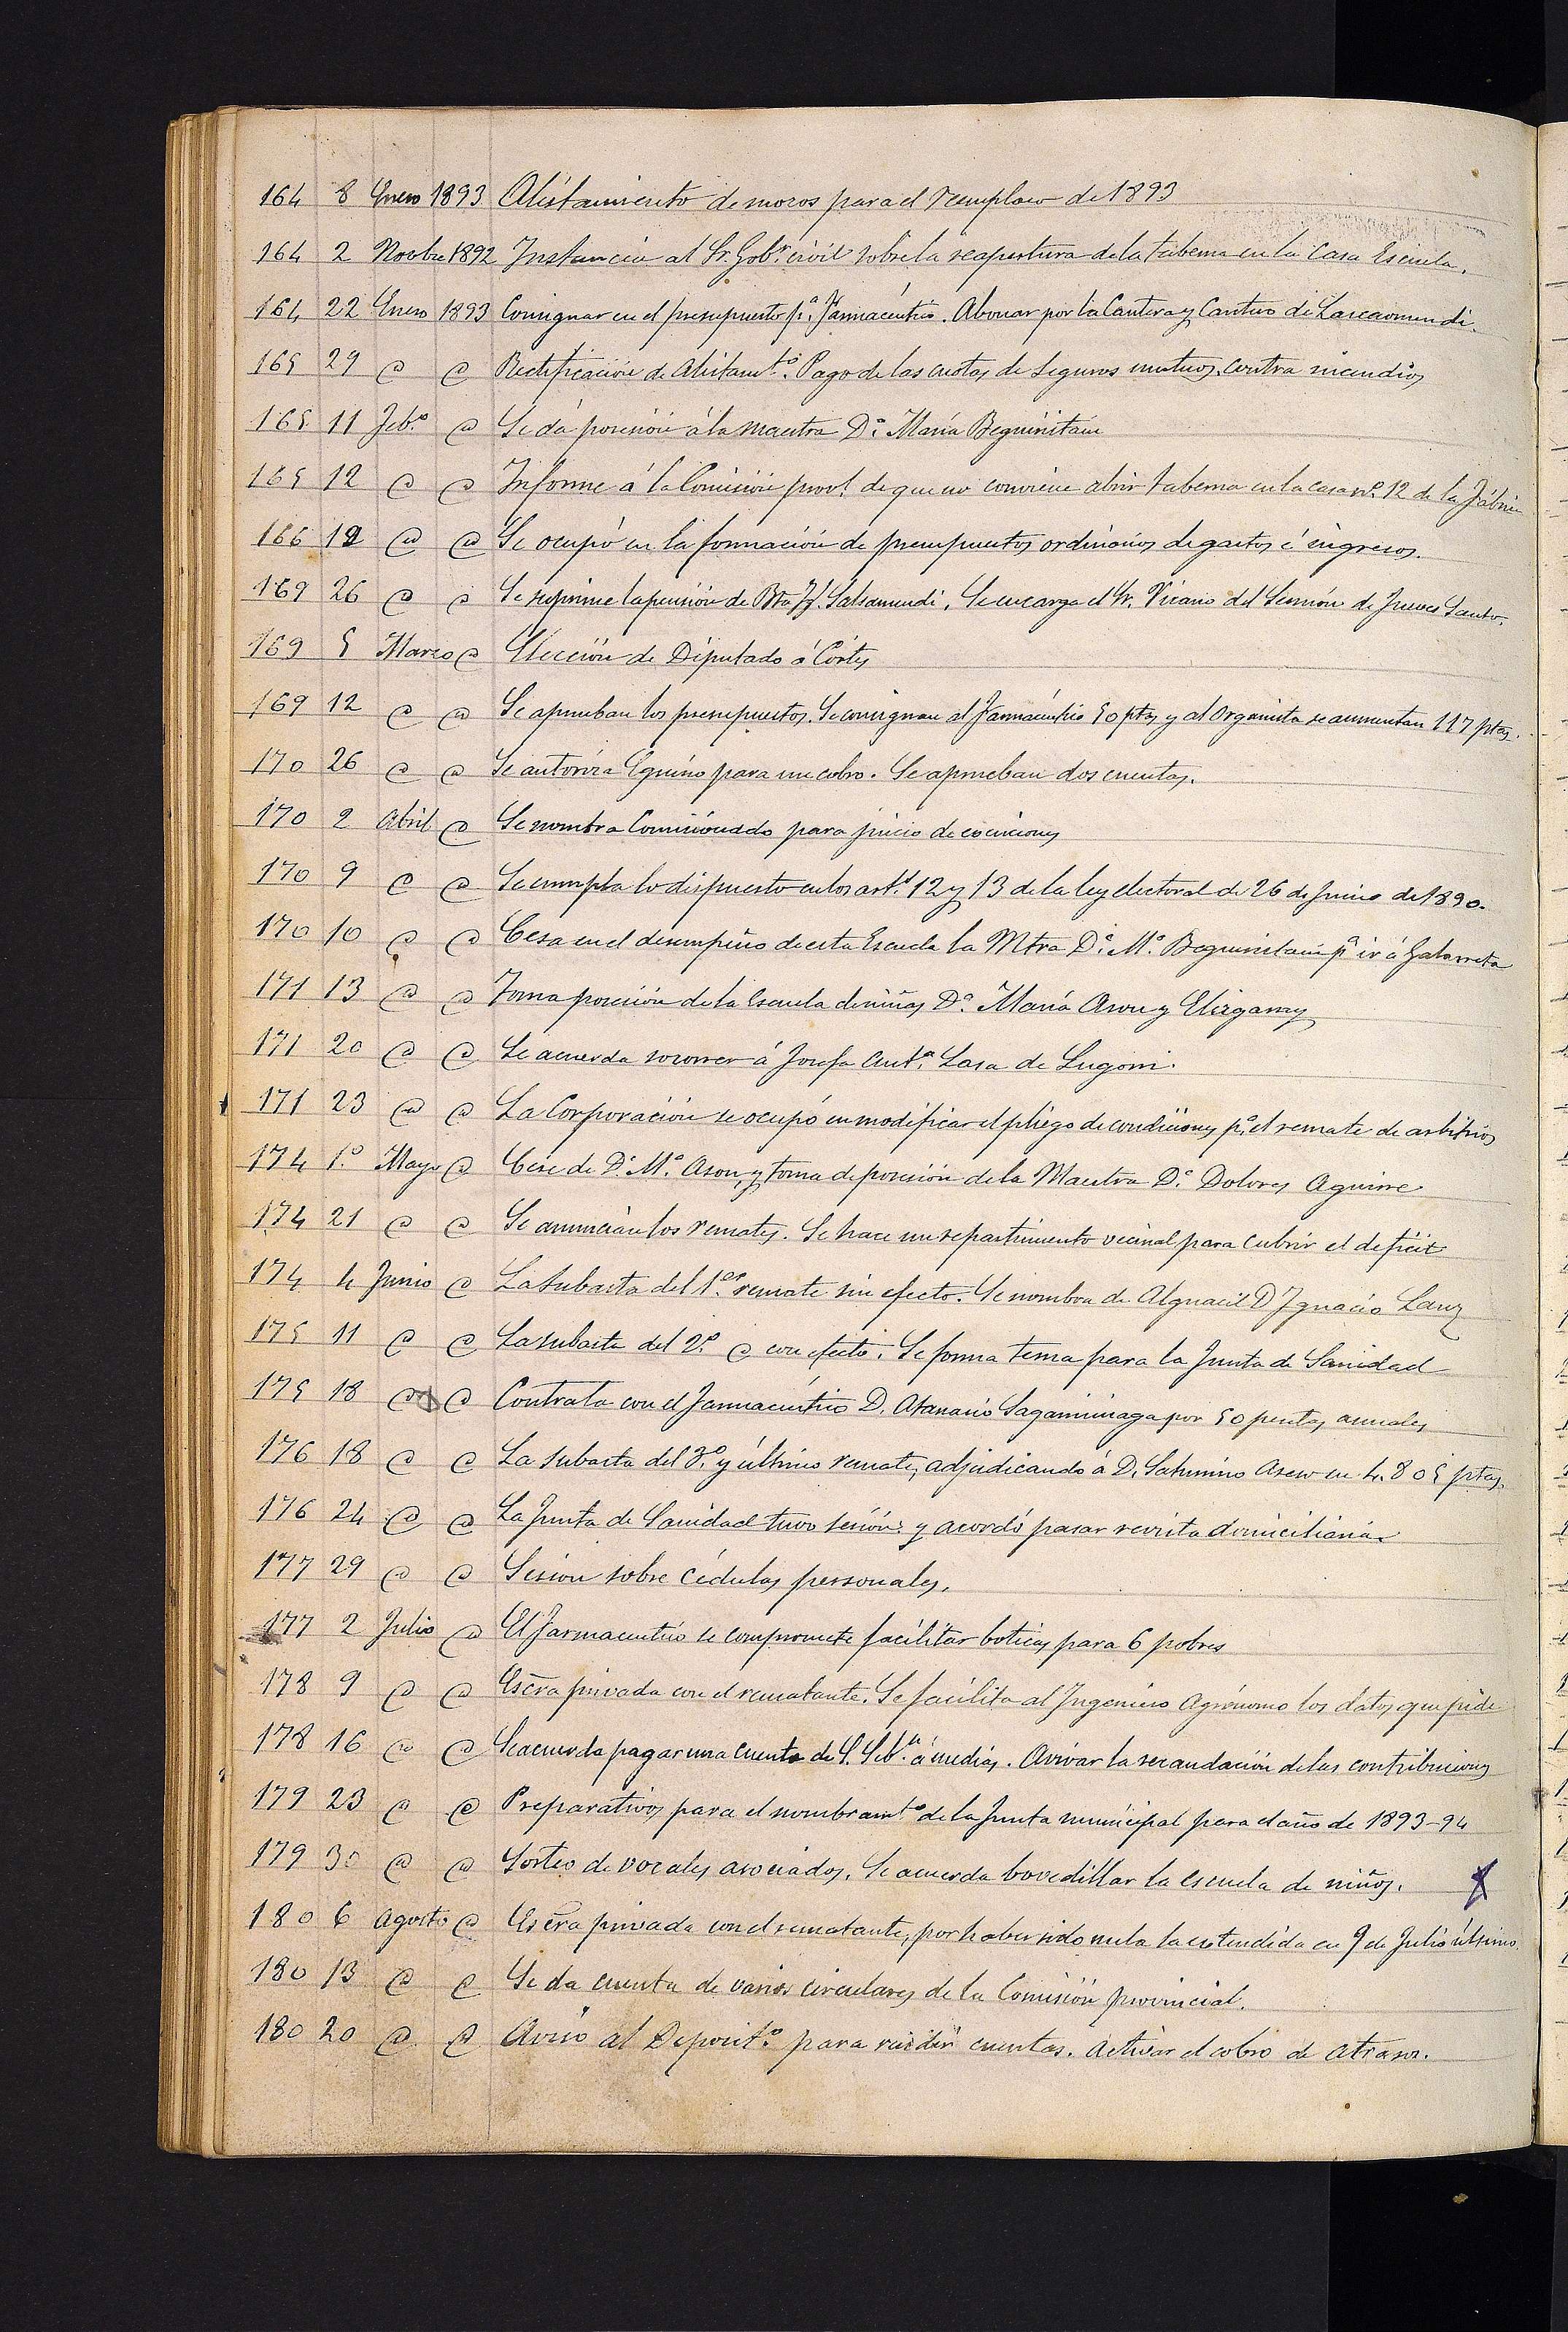 164 8 Enero 1893 Alistamiento de mozos para el reemplazo de 1893
164 2 Novbre 1892 Instancia al Sr. Gobr. civil sobre la reapertura de la taberna en la Casa Escuela.
164 22 Enero 1893 Consignar en el presupuesto pª. Farmacéutico. Abonar por la Cantera y Canteo de Lascaomendi.
165 29 @ @ Rectificación de Alistamtº. Pago de las cuotas de Seguros mutuos contra incendios
165 11 Febº @ Se dá posesión á la maestra Dª. María Beguiristain
165 12 @ @ Informe á la Comisión provl. de que no conviene abrir taberna en la casa nº. 12 de la Fábrica
166 19 @ @ Se ocupó en la formación de presupuestos ordinarios de gastos é ingresos.
169 26 @ @ Se suprime la pensión de Bta Iz. Salsamendi. Se encarga el Sr. Vicario del Sermón de Jueves Santo.
169 5 Marzo @ Elección de Diputado á Cortes
169 12 @ @ Se aprueban los presupuestos. Se consignan al Farmacéutico 50 ptas y al Organista se aumentan 117 ptas.
170 26 @ @ Se autoriza Eguino para un cobro. Se aprueban dos cuentas.
170 2 Abril @ Se nombra Comisionado para juicio de excnciones
170 9 @ @ Se cumpla lo dispuesto en los arts. 12 y 13 de la ley electoral de 26 de Junio de 1890.
170 10 @ @ Cesa en el desempeño de esta Escuela la Mtra Dª. Mª. Beguiristain pª ir á Galarreta
171 13 @ @ Toma posesión de la Escuela de niñas Dª. María Asou y Elizgaray
171 20 @ @ Se acuerda socorrer á Josefa Antª. Lasa de Lugorri.
171 23 @ @ La Corporación se ocupó en modificar el pliego de condiciones pª. el remate de arbitrios
174 1º. Mayo @ Cese de Dª. Mª. Asou, y toma de posesión de la Maestra Dª. Dolores Aguirre
174 21 @ @ Se anuncian los remates. Se hace un repartimiento vecinal para cubrir el deficit
174 4 Junio @ La subasta del 1er. remate sin efecto. Se nombra de Alguacil D Ignacio Lanz
175 11 @ @ La subasta del 2º. @ con efecto. Se forma terna para la Junta de Sanidad
175 18 @ @ Contrata con el Farmacéutico D. Atanasio Sagaminaga por 50 pesetas anuales
176 18 @ @ La subasta del 3º. y último remate, adjudicando á D. Saturnino Aseo en 4.805 ptas.
176 24 @ @ La Junta de Sanidad tuvo sesión y acordó pasar revista domiciliaria.
177 29 @ @ Sesion sobre Cédulas personales.
177 2 Julio @ El Farmaceutico se compromete facilitar boticas para 6 pobres
178 9 @ @ Escra privada con el rematante. Se facilita al Ingeniero Agrónomo los datos que pide
178 16 @ @ Se acuerda pagar una cuenta de S. Sebn. á medias. Avivar la recaudación de las contribuciones
179 23 @ @ Preparativos para el nombramtº de la Junta municipal para el año de 1893-94
179 30 @ @ Sorteo de vocales asociados. Se acuerda bovedillar la escuela de niños.
180 6 Agosto @ Escra privada con el rematante, por haber sido nula la extendida en 9 de Julio último.
180 13 @ @ Se da cuenta de varios circulares de la Comisión provincial.
180 20 @ @ Aviso al Depositº. para rendir cuentas. Activar el cobro de atrasos.